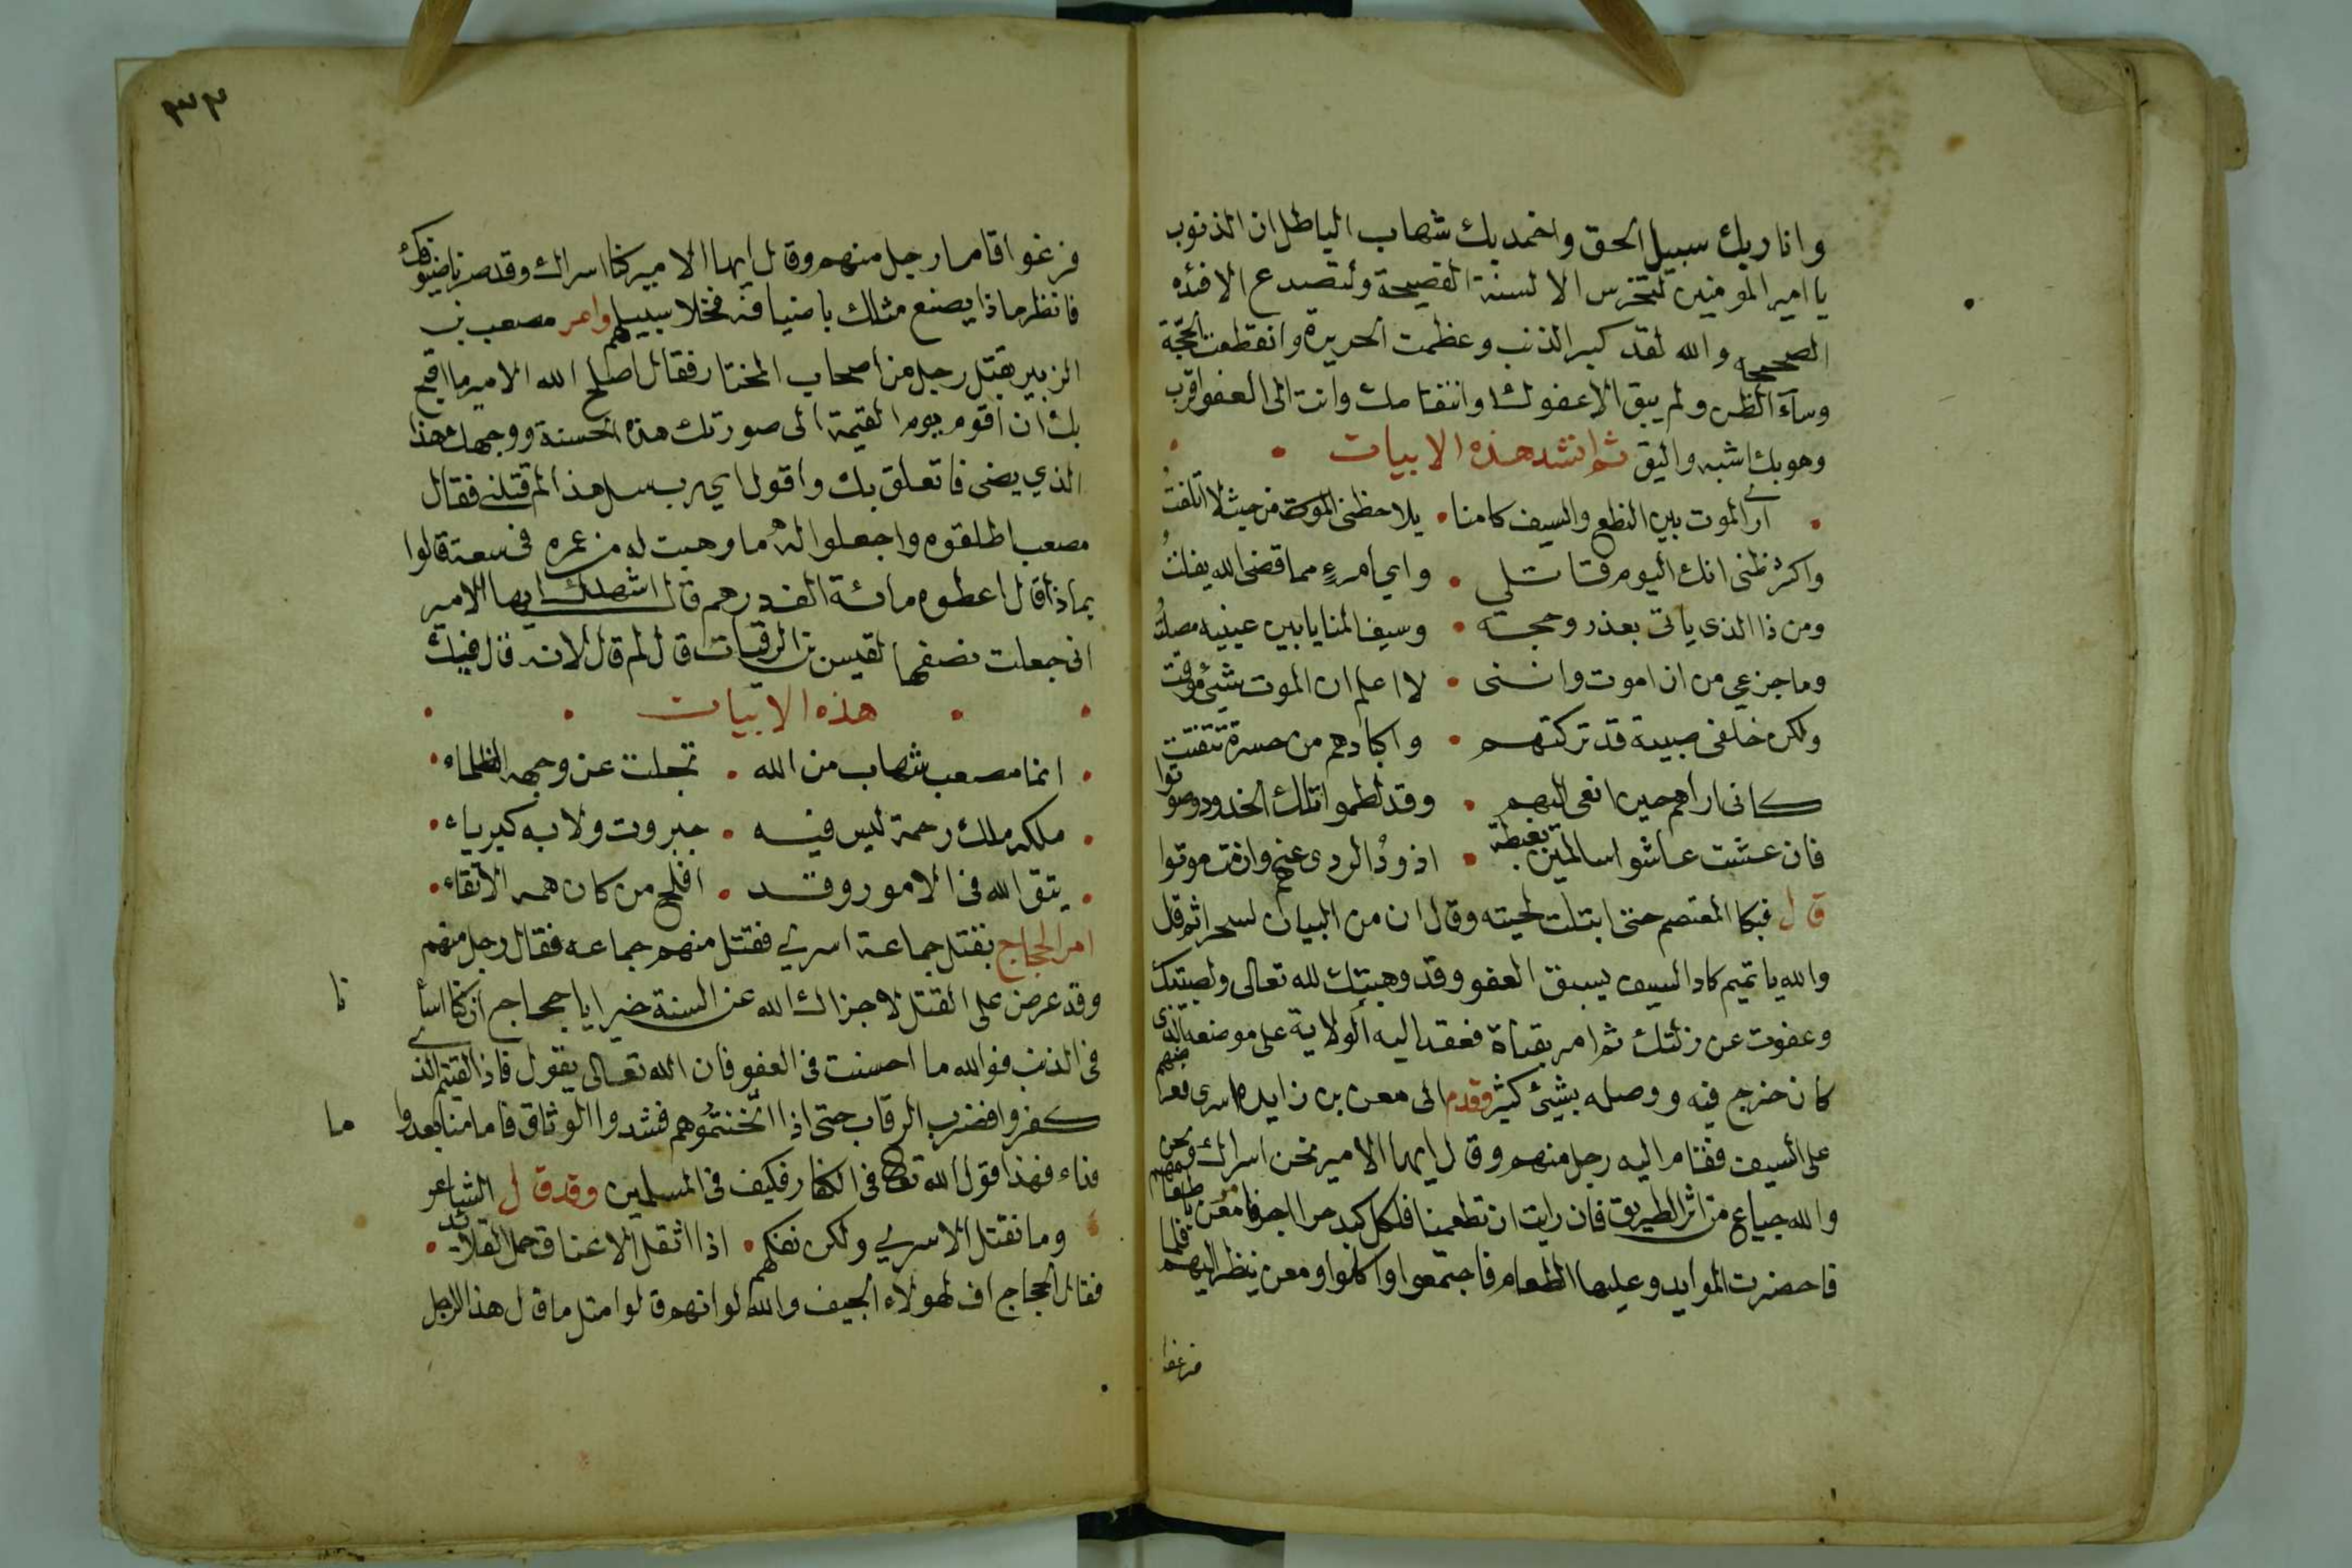 وانار بك سبيل الحق واخمد بك شهاب الباطل ان الذنوب
يا امير المومنين لتخرس الالسنة الفصيحة ولتصدع الافئده
الصحيحه والله لقد كبير الذنب وعظمت الجريرة وانقطعت الحجة
وساء الظن ولم يبق الا عفوك او انتقامك وانت الى العفو اقرب
وهو بك اشبه واليق ثم انشد هذه الابيات
ارى الموت بين النطع والسيف كامنا • يلاحظنى الموت من حيث لا اتلفت
واكثر ظنى انك اليوم قاتلي • واي امرءٍ مما قضى الله يفلتُ
ومن ذا الذى ياتى بعذر وحجته • وسيف المنايا بين عينيه مصلتُ
وما جزعي من ان اموت واننى • لا اعلم ان الموت شيئ موقت
ولكن خلفى صبية قد تركتهم • واكبادهم من حسرة تتفتت
كانى اراهم حين انعى اليهم • وقد لطموا تلك الخدود وصوتوا
فان عشت عاشوا سالمين بغبطة • اذودُ الردى عنهم وان مت موتوا
قال فبكا المعتصم حتى ابتلت لحيته وقال ان من البيان لسحرا ثم قال
والله يا تميم كاد السيف يسبق العفو وقد وهبتك لله تعالى ولصبيتك
وعفوت عن زلتك ثم امر بقناة فعقد اليه الولاية على موضعه الذى
كان خرج فيه ووصله بشيئ كثير وقدم الى معن بن زايده اسرى فعرضهم
على السيف فقام اليه رجل منهم وقال ايها الامير نحن اسراك ونحن
والله جياع من اثر الطريق فان رايت ان تطعمنا فلكل كبد حرا اجر فامر معن باطعامهم
فاحضرت الموايد وعليها الطعام فاجتمعوا واكلوا ومعن ينظر اليهم فلما
فرغوا
٣٣
فرغوا قام رجل منهم وقال ايها الامير كنا اسراك وقد صرنا ضيوفك
فانظر ماذا يصنع مثلك باضيافه فخلا سبيلهم وامر مصعب بن
الزبير بقتل رجل من اصحاب المختار فقال اصلح الله الامير ما اقبح
بك ان اقوم يوم القيمة الى صورتك هذه الحسنة ووجهك هذا
الذي يضى فاتعلق بك واقول اي رب سل هذا لم قتلنى فقال
مصعب اطلقوه واجعلوا له ما وهبت له من عمره فى سعة قالوا
بماذا قال اعطوه مائة الف درهم قال اشهدك ايها الامير
انى جعلت نصفها لقيس بن الرقيات قال لم قال لانه قال فيك
هذه الابيات
• انما مصعب شهاب من الله • تجلت عن وجهه الظلماء •
• ملكه ملك رحمة ليس فيه • جبروت ولا به كبرياء •
• يتق الله فى الامور وقد • افلح من كان همه الاتقاء •
امر الحجاج بقتل جماعة اسرى فقتل منهم جماعه فقال رجل منهم
وقد عرض على القتل لا جزاك الله عن السنة خيرا يا حجاج ان كنا اسأنا
فى الذنب فوالله ما احسنت فى العفو فان الله تعالى يقول فاذا لقيتم الذى
كفروا فضرب الرقاب حتى اذا اثخنتموهم فشدوا الوثاق فاما منا بعد واما
فداء فهذا قول الله تعالى فى الكفار فكيف فى المسلمين وقد قال الشاعر
وما نقتل الاسرى ولكن نفكهم • اذا اثقل الاعناق حمل القلائد •
فقال الحجاج اف لهولاء الجيف والله لو انهم قالوا مثل ما قال هذا الرجل